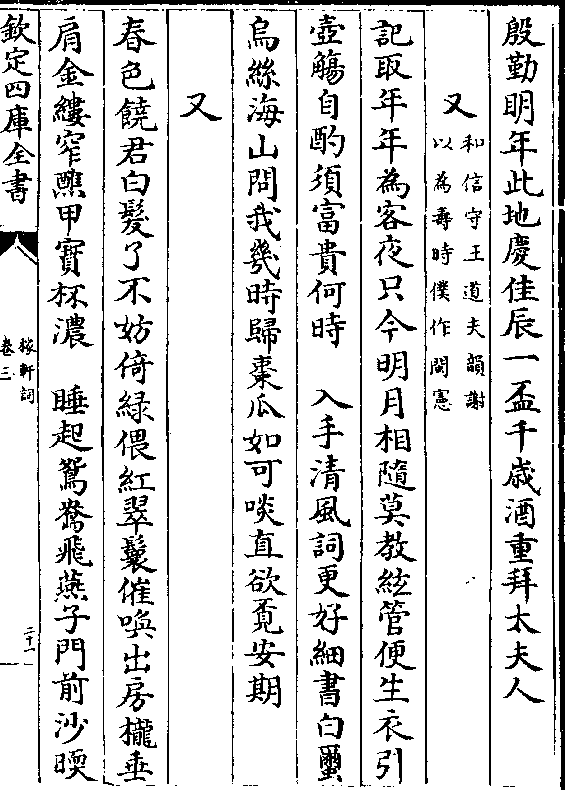 殷勤明年此地慶佳辰一盃千歲酒重拜太夫人
又和信守王道夫韻謝
以為壽時僕作閩憲
記取年年為客夜只今明月相隨莫教絃管便生衣引
壺觴自酌須富貴何時　入手清風詞更好細書白璽
烏絲海山問我幾時歸棗瓜如可啖直欲覔安期
又
春色饒君白髮了不妨倚綠偎紅翠鬟催喚出房櫳垂
肩金縷窄醮甲寳杯濃　睡起鴛鴦飛燕子門前沙暖
欽定四庫全書
稼軒詞
卷三
二十一